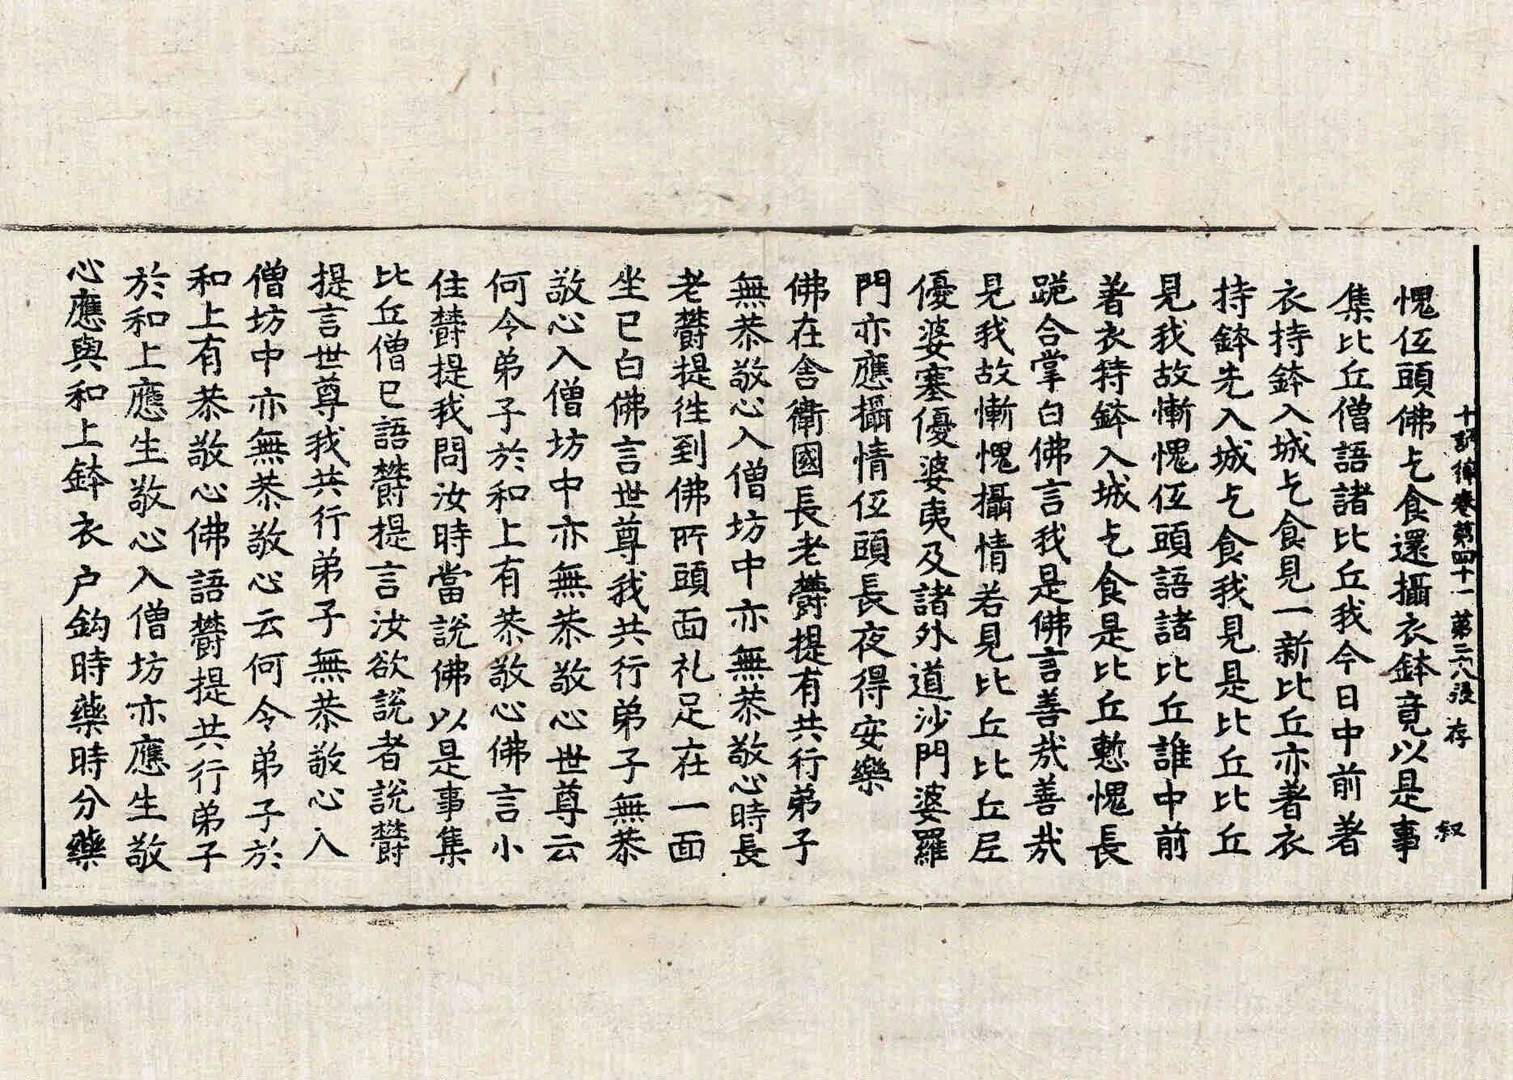 十誦律卷第四十一 第三八張 存 叙
愧伍頭佛乞食還攝衣鉢竟以是事
集比丘僧語諸比丘我今日中前著
衣持鉢入城乞食見一新比丘亦著衣
持鉢先入城乞食我見是比丘比丘
見我故慚愧伍頭語諸比丘誰中前
著衣持鉢入城乞食是比丘慙愧長
跪合掌白佛言我是佛言善㢤善㢤
見我故慚愧攝情若見比丘比丘尼
優婆塞優婆夷及諸外道沙門婆羅
門亦應攝情伍頭長夜得安樂
佛在舍衛國長老欝提有共行弟子
無恭敬心入僧坊中亦無恭敬心時長
老欝提徃到佛所頭面礼足在一面
坐已白佛言世尊我共行弟子無恭
敬心入僧坊中亦無恭敬心世尊云
何令弟子於和上有恭敬心佛言小
住欝提我問汝時當説佛以是事集
比丘僧已語欝提言汝欲説者説欝
提言世尊我共行弟子無恭敬心入
僧坊中亦無恭敬心云何令弟子於
和上有恭敬心佛語欝提共行弟子
於和上應生敬心入僧坊亦應生敬
心應與和上鉢衣户鈎時藥時分藥